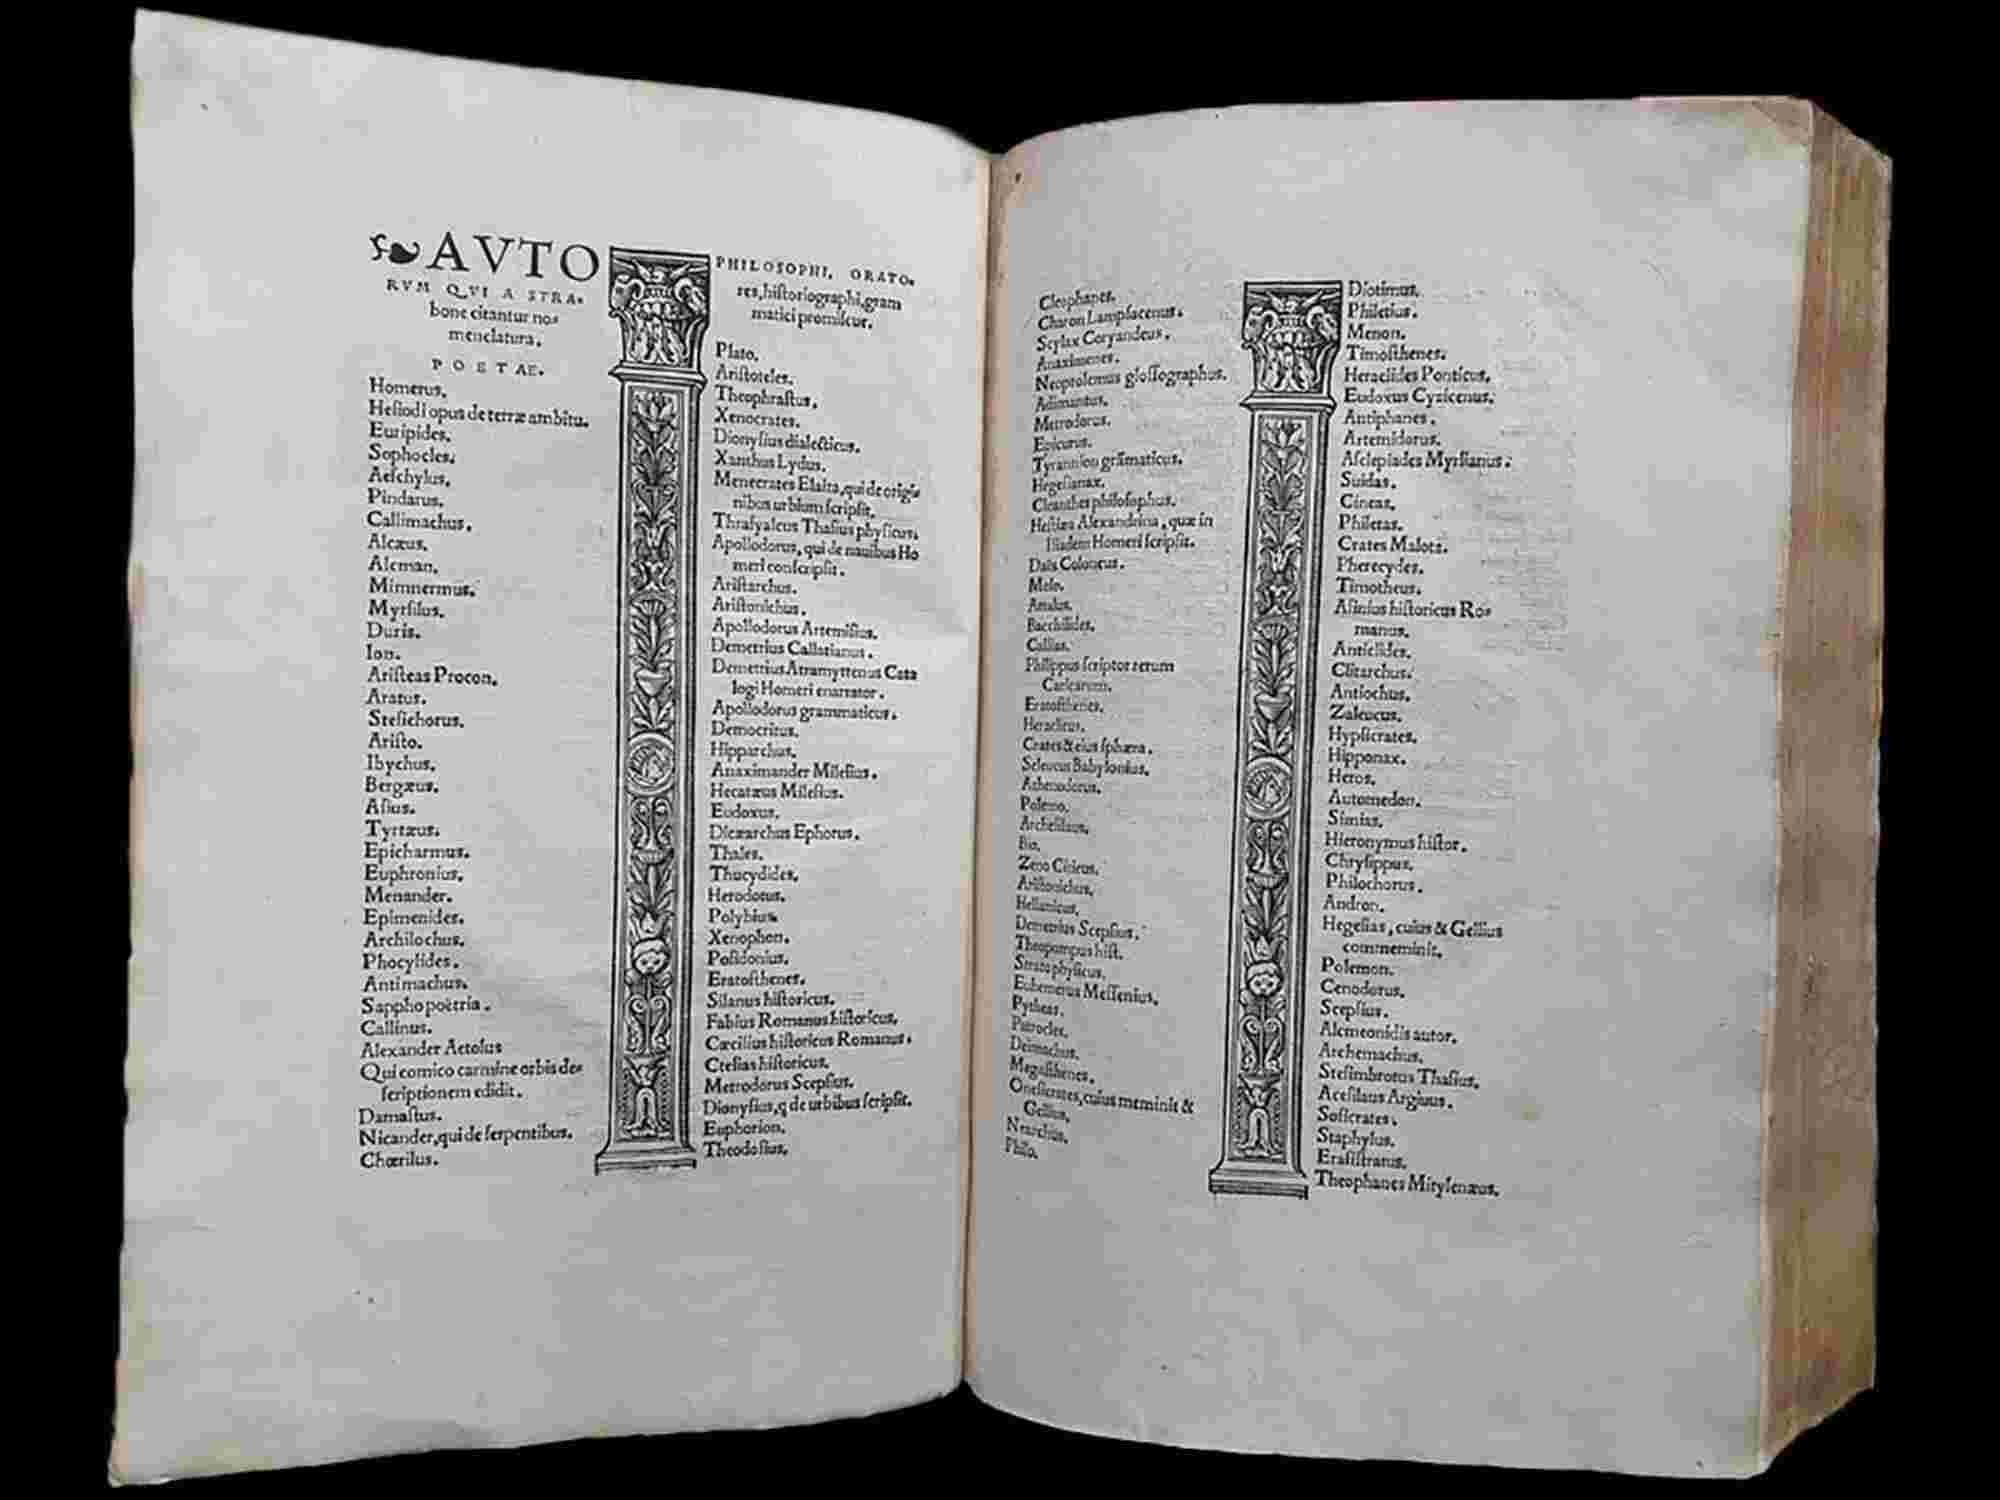 AVTO
RVM QVI A STRA-
bone citantur no-
menclatura.
POETAE.
Homerus.
Hesiodi opus de terræ ambitu.
Euripides.
Sophocles.
Aeschylus.
Pindarus.
Callimachus.
Alcæus.
Alcman.
Mimnermus.
Myrsilus.
Duris.
Ion.
Aristeas Procon.
Aratus.
Stesichorus.
Aristo.
Ibychus.
Bergæus.
Asius.
Tyrtæus.
Epicharmus.
Euphronius.
Menander.
Epimenides.
Archilochus.
Phocylides.
Antimachus.
Sappho poëtria.
Callinus.
Alexander Aetolus
Qui comico carmine orbis de-
scriptionem edidit.
Damastus.
Nicander, qui de serpentibus.
Chœrilus.
PHILOSOPHI, ORATO-
res, historiographi, gram
matici promiscue.
Plato.
Aristoteles.
Theophrastus.
Xenocrates.
Dionysius dialecticus.
Xanthus Lydus.
Menecrates Elaita, qui de origi-
nibus urbium scripsit.
Thrasyalcus Thasius physicus.
Apollodorus, qui de nauibus Ho
meri conscripsit.
Aristarchus.
Aristonichus.
Apollodorus Artemisius.
Demetrius Callatianus.
Demetrius Atramyttenus Cata
logi Homeri enarrator.
Apollodorus grammaticus.
Democritus.
Hipparchus.
Anaximander Milesius.
Hecatæus Milesius.
Eudoxus.
Dicæarchus Ephorus.
Thales.
Thucydides.
Herodotus.
Polybius.
Xenophon.
Posidonius.
Eratosthenes.
Silanus historicus.
Fabius Romanus historicus.
Cæcilius historicus Romanus.
Ctesias historicus.
Metrodorus Scepsius.
Dionysius, q de urbibus scripsit.
Euphorion.
Theodosius.
Cleophanes.
Charon Lampsacenus.
Scylax Coryandeus.
Anaximenes.
Neoptolemus glossographus.
Adimantus.
Metrodorus.
Epicurus.
Tyrannion grãmaticus.
Hegesianax.
Cleanthes philosophus.
Hestiæa Alexandrina, quæ in
Iliadem Homeri scripsit.
Dais Coloneus.
Melo.
Attalus.
Bacchilides.
Callias.
Philippus scriptor rerum
Caricarum.
Eratosthenes.
Heraclitus.
Crates & eius sphæra.
Seleucus Babylonius.
Athenodorus.
Polemo.
Archesilaus.
Bio.
Zeno Citicus.
Aristonichus.
Hellanicus.
Demetrius Scepsius.
Theopompus hist.
Strato physicus.
Euhemerus Messenius.
Pytheas.
Patrocles.
Deimachus.
Megasthenes.
Onesicrates, cuius meminit &
Gellius.
Nearchus.
Philo.
Diotimus.
Philetius.
Menon.
Timosthenes.
Heraclides Ponticus.
Eudoxus Cyzicenus.
Antiphanes.
Artemidorus.
Asclepiades Myrsianus.
Suidas.
Cineas.
Philetas.
Crates Malota.
Pherecydes.
Timotheus.
Asinius historicus Ro-
manus.
Anticlides.
Clitarchus.
Antiochus.
Zaleucus.
Hypsicrates.
Hipponax.
Heros.
Automedon.
Simias.
Hieronymus histor.
Chrysippus.
Philochorus.
Andron.
Hegesias, cuius & Gellius
commeminit.
Polemon.
Cenodorus.
Scepsius.
Alcmeonidis autor.
Archemachus.
Stesimbrotus Thasius.
Acesilaus Argiuus.
Sosicrates.
Staphylus.
Erasistratus.
Theophanes Mitylenæus.